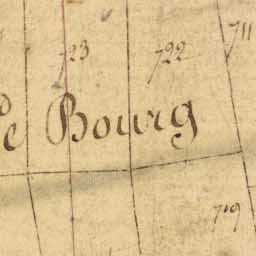 711
723 722
Le Bourg
719